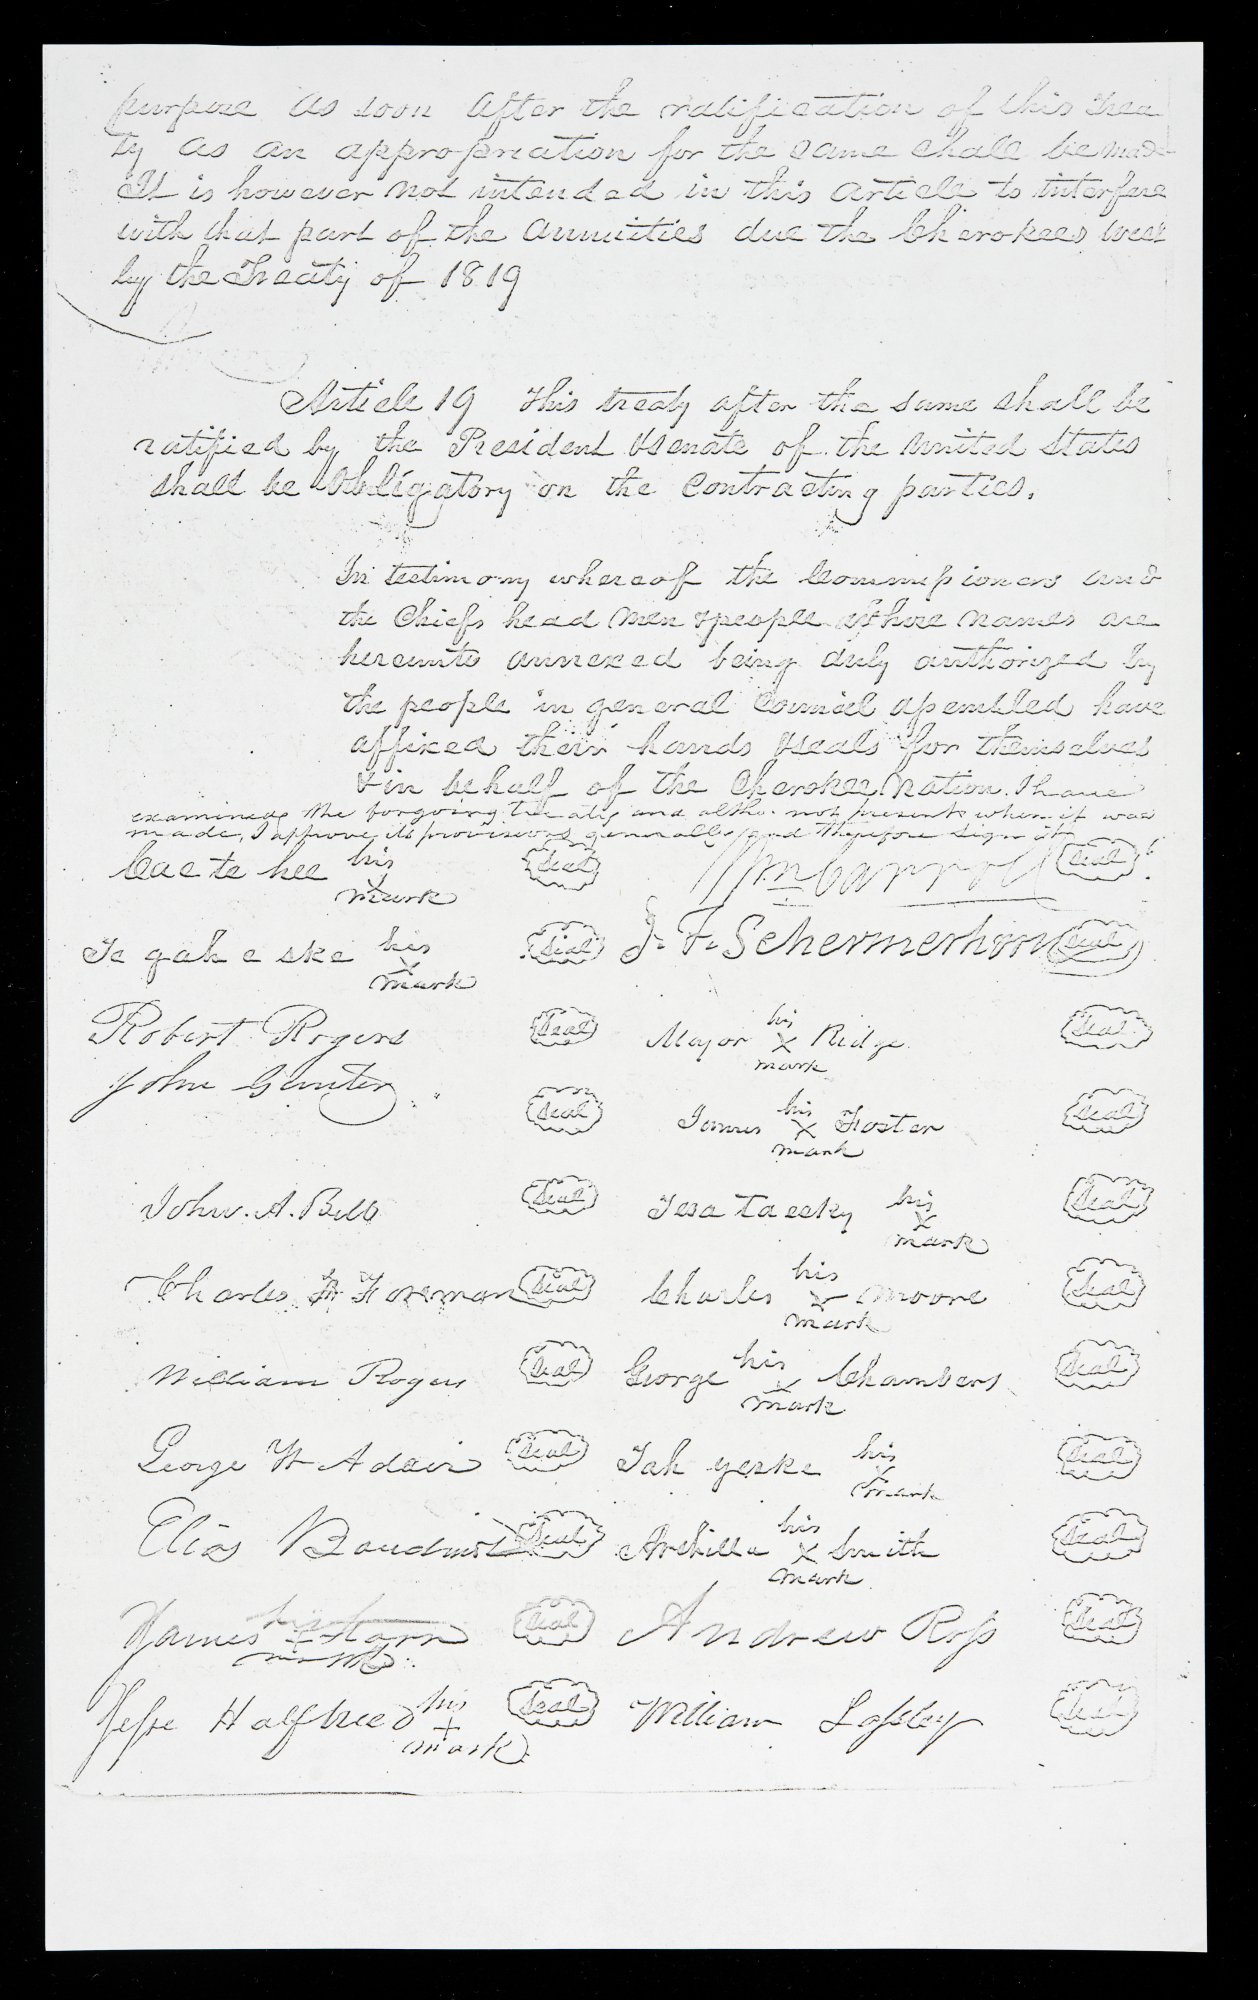 purpose as soon after the ratification of this trea
ty as an appropriation for the same shall be made
It is however not intended in this article to interfere
with that part of the annuities due the Cherokees West
by the Treaty of 1819
Article 19 This treaty after the same shall be
ratified by the President & Senate of the United States
shall be obligatory on the Contracting parties.
In testimony whereof the Commissioners and
the Chiefs head men & people whose names are
hereunto annexed being duly authorized by
the people in general Council assembled have
affixed their hands & seals for themselves
& in behalf of the Cherokee Nation. I have
examined the forgoing treaty and altho. not present when it was
made, I approve its provisions generally and therefore sign it
Cae te hee his x mark Seal Wm Carroll Seal
Te gah e ske his x mark Seal J. F. Schermerhorn Seal
Robert Rogers Seal Major his x mark Ridge Seal
John Gunter Seal James his x mark Foster Seal
John. A. Bell Seal Tesa taesky his x mark Seal
Charles F Foreman Seal Charles his x mark Moore Seal
William Rogers Seal George his x mark Chambers Seal
George W Adair Seal Tah yeske his x mark Seal
Elias Boudinot Seal Archilla his x mark Smith Seal
James his x mark Starr Seal Andrew Ross Seal
Jesse Halfbreed his x mark Seal William Lassley Seal